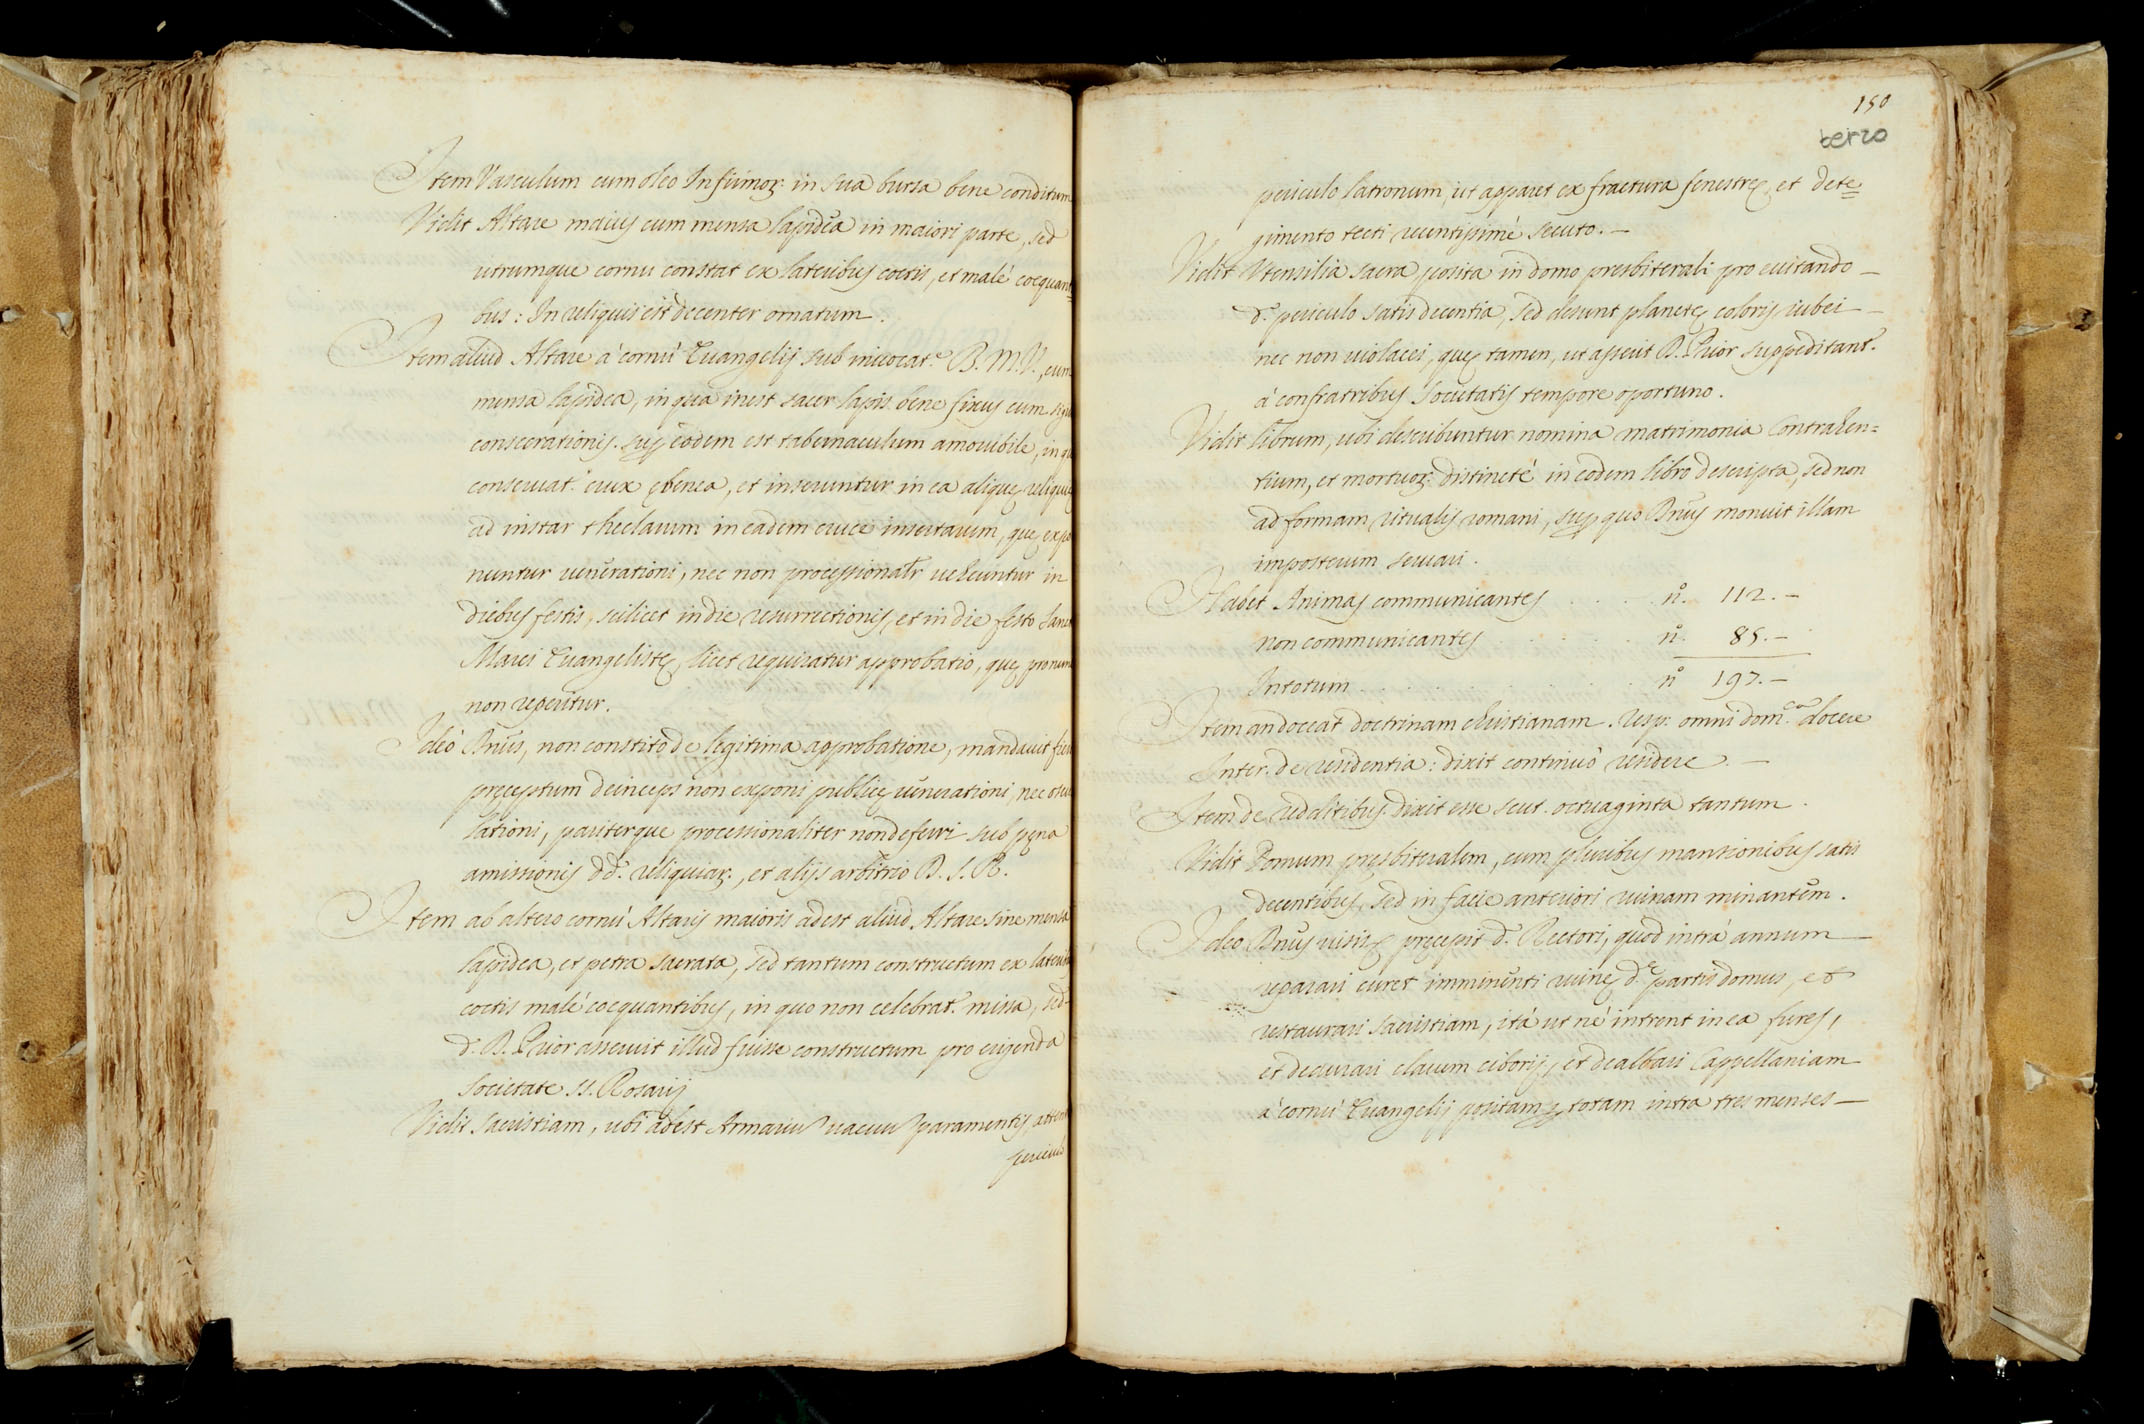 Item Vasculum cum oleo Infirmoꝝ: in sua bursa bene conditum
Vidit Altare maius cum mensa lapidea in maiori parte, sed
utrumque cornu constat ex lateribus coctis, et malè coequan=
bus: In reliquis est decenter ornatum.
Item aliud Altare à cornù Euangelij sub inuocat.e B. M. V., cum
mensa lapidea, in qua inest sacer lapis bene fixus cum sig
consecrationis. sup eodem est tabernaculum amouibile, in q
conseruat.r crux ębenea, et inseruntur in ea aliquę reliquię
ad instar thecharum in eadem cruce insertarum, quę expo
nuntur uenerationi, nec non processionalr uehuntur in
diebus festis, scilicet in die resurrectionis, et in die festo Sanc
Marci Euangelistę, licet requiratur approbatio, quę pro nun
non reperitur.
Ideò Dnus, non constito de legitima approbatione, mandauit fieri
pręceptum deinceps non exponi publicę uenerationi, nec oscu
lationi, pariterque processionaliter non deferri sub pęna
amissionis dd. reliquiaꝝ., et alijs arbitrio D. S. R.
Item ab altero cornù Altaris maioris adest aliud Altare sine mensa
lapidea, et petra sacrata, sed tantum constructum ex laterib
coctis malè coequantibus, in quo non celebrat.r missa, sed
d. D. Prior asseruit illud fuisse constructum pro erigenda
societate SS. Rosarij
Vidit sacristiam, ubi adest Armariu uacuu paramentis, atten
pericul
150
terzo
periculo latronum, ut apparet ex fractura fenestrę, et dete=
gimento tecti recentissimè secuto.—
Vidit Utensilia sacra posita in domo presbiterali pro euitando—
d.o periculo satis decentia, sed desunt planetę coloris rubei—
nec non uiolacei, quę tamen, ut asserit D. Prior suppeditant.r
à confratribus Societatis tempore oportuno.
Vidit librum, ubi describuntur nomina matrimonia Contrahen=
tium, et mortuoꝝ: distinctè in eodem libro descripta, sed non
ad formam ritualis romani, sup quo Dnus monuit illam
imposterum seruari.
Habet Animas communicantes . . . n.o 112.—
non communicantes . . . . n.o 85.—
In totum . . . . . . . n.o 197.—
Item an doceat doctrinam christianam. Resp: omni dom.ca docere
Inter. de residentia: dixit continuò residere.—
Item de redditibus: dixit esse scut. octuaginta tantum.
Vidit Domum pręsbiteralem, cum pluribus mansionibus satis
decentibus, sed in facie anteriori ruinam minantem.
Ideo Dnus uisitę pręcepit d. Rectori, quod intrà annum—
reparari curet imminenti ruinę d.ę partis domus, et
restaurari sacristiam, ità ut nè intrent in ea fures,
et deaurari clauem ciborij, et dealbari Cappellaniam
à cornù Euangelij positam, totam intra tres menses—